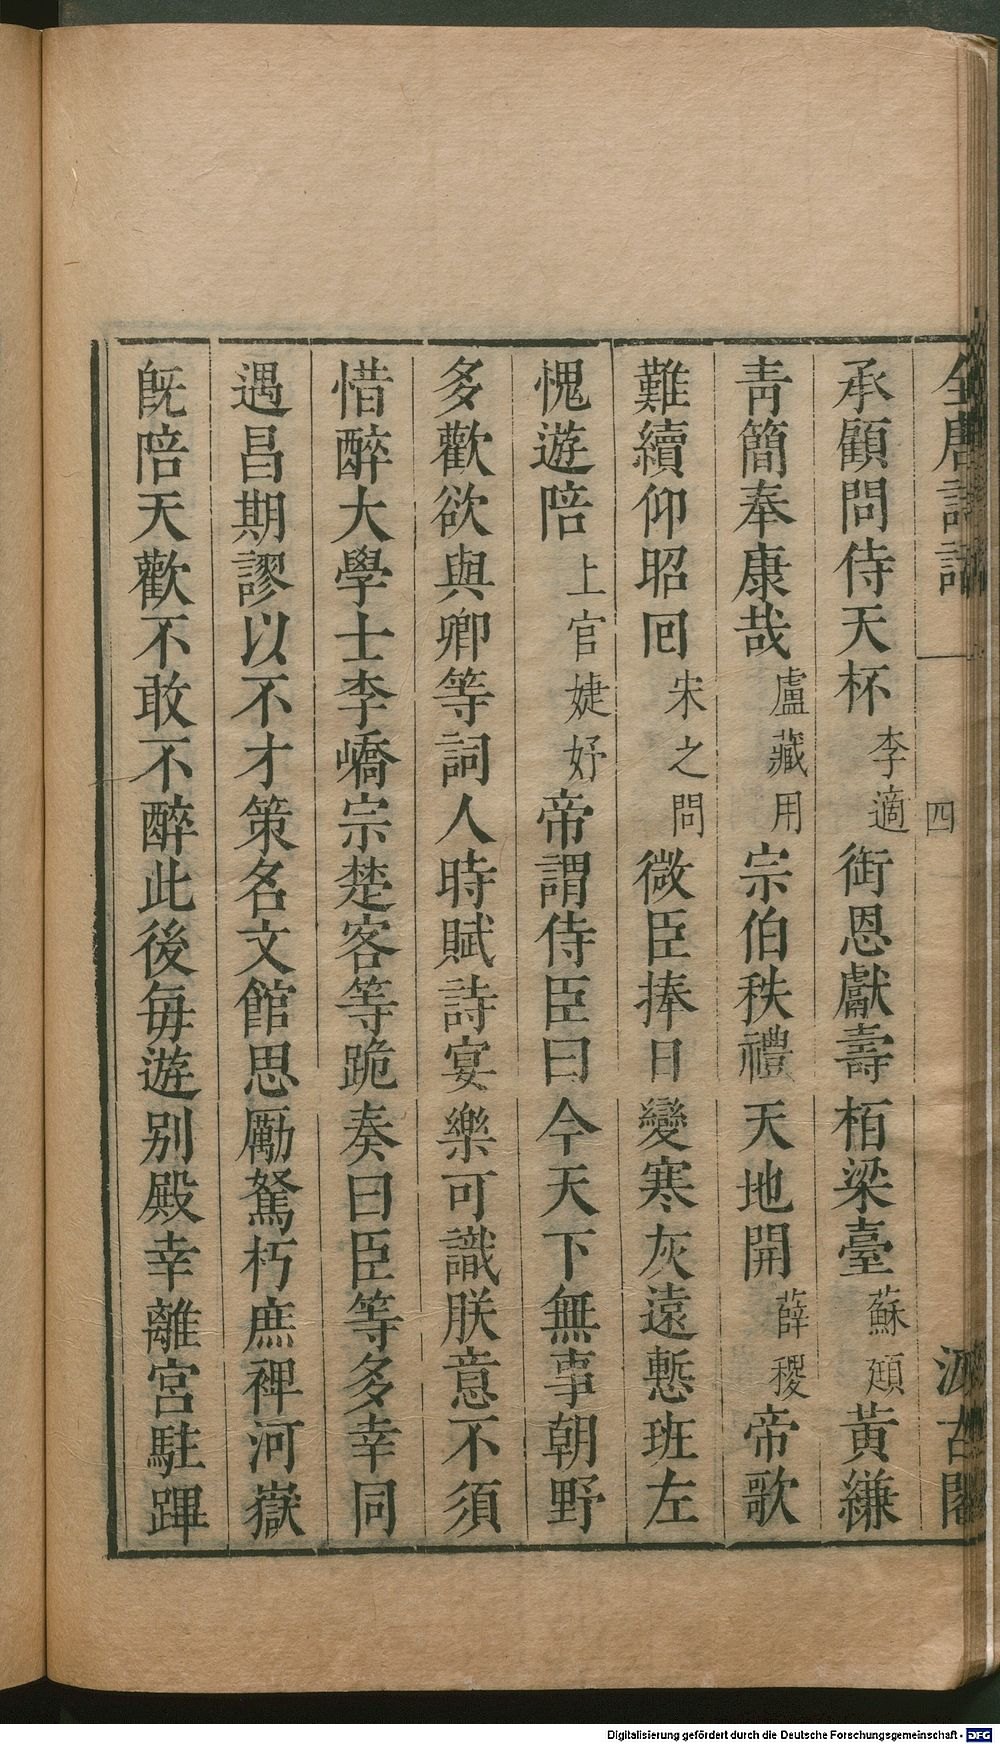 全唐詩話 四 汲古閣
承顧問侍天杯李適銜恩獻壽栢梁臺蘇頲黃縑
靑簡奉康哉盧藏用宗伯秩禮天地開薛稷帝歌
難續仰昭回宋之問微臣捧日變寒灰遠慙班左
愧遊陪上官婕妤帝謂侍臣曰今天下無事朝野
多歡欲與卿等詞人時賦詩宴樂可識朕意不須
惜醉大學士李嶠宗楚客等跪奏曰臣等多幸同
遇昌期謬以不才策名文館思勵駑朽庶裨河嶽
旣陪天歡不敢不醉此後每遊別殿幸離宮駐蹕
Digitalisierung gefördert durch die Deutsche Forschungsgemeinschaft - DFG